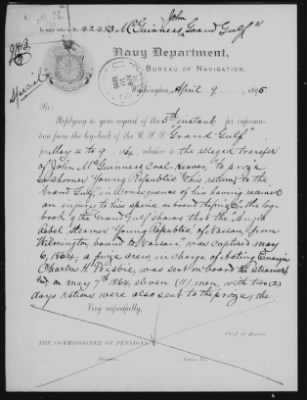 John
4243 McGuinness, "Grand Gulf"
Navy Department,
Bureau of Navigation,
Special
Washington, April 9, 1895
Sir:
Replying to your request of the 5th instant for information from the log-book of the U.S.S. "Grand Gulf"
for May 4 to 9, 1864, relative to the alleged transfer
of John McGuinness, Coal Heaver, to prize
Schooner "Young Republic" & his return to the
Grand Gulf, in consequence of his having received
an injury to his spine on board the
book of the Grand Gulf shows that the Anglo
Rebel Steamer "Young Republic" of Nassau, from
Wilmington bound to Nassau, was captured May
6, 1864, a prize crew in charge of Acting Ensign
Charles H. Frisbie, was sent on board the steamer
and on May 7th 1864 eleven (11) men, with two (2)
days rations were also sent to the prize; the
Very respectfully,
Chief of Bureau.
The Commissioner of Pensions,
Division,